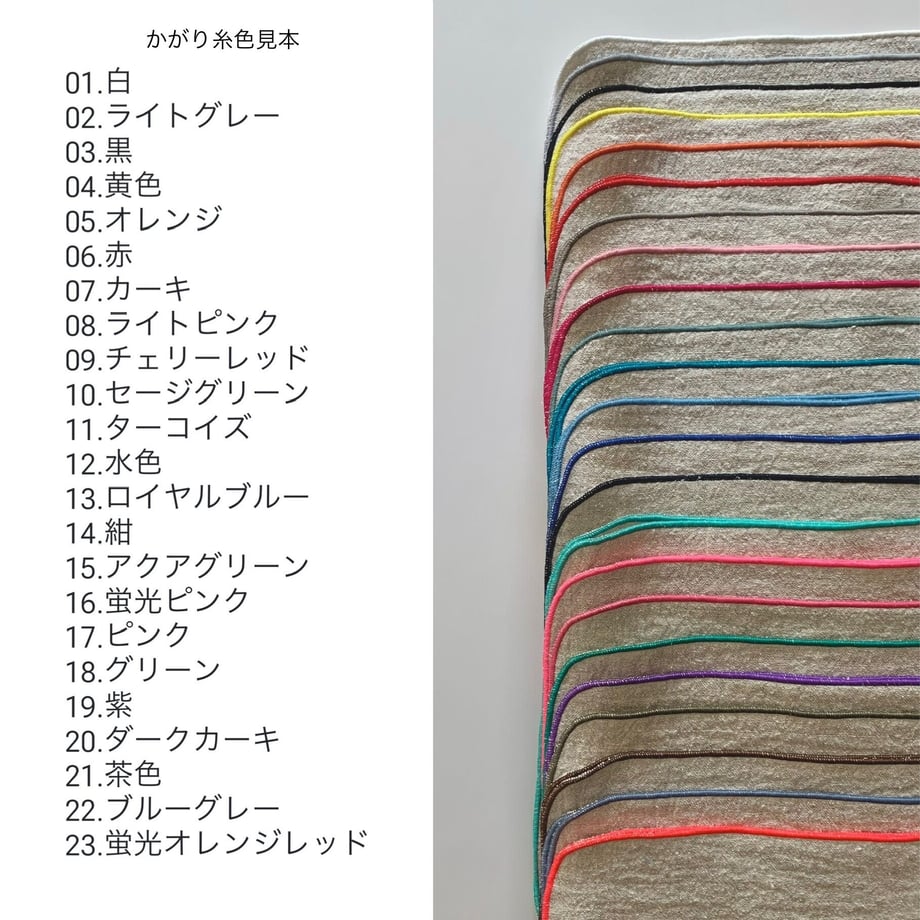 かがり糸色見本
01.白
02.ライトグレー
03.黒
04.黄色
05.オレンジ
06.赤
07.カーキ
08.ライトピンク
09.チェリーレッド
10.セージグリーン
11.ターコイズ
12.水色
13.ロイヤルブルー
14.紺
15.アクアグリーン
16.蛍光ピンク
17.ピンク
18.グリーン
19.紫
20.ダークカーキ
21.茶色
22.ブルーグレー
23.蛍光オレンジレッド